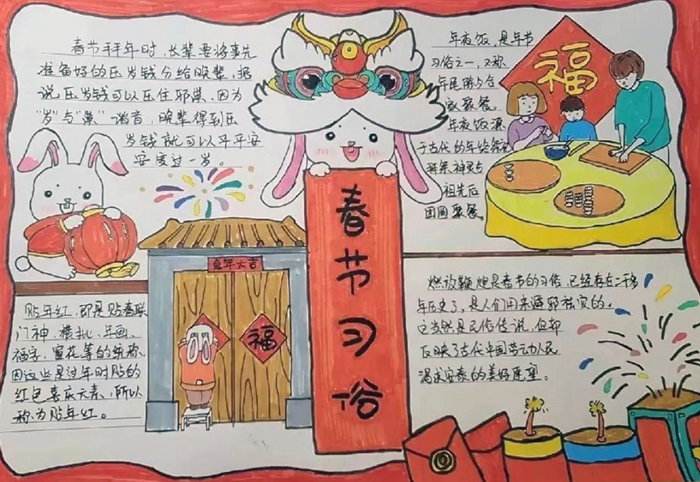 春节拜年时,长辈要将事先
准备好的压岁钱分给晚辈,据
说压岁钱可以压住邪祟,因为
"岁"与"祟"谐音,晚辈得到压
岁钱就可以平平安
安度过一岁。
春节习俗
年夜饭,是年节
习俗之一,又称
聚餐。
年夜饭源
于古代的年终祭
拜祭神灵与
祖先后
团圆聚餐。
福
兔年大吉
福
贴年红,即是贴春联
门神、横批、年画、
福字、窗花等的统称
因这些是过年时贴的
红色喜庆元素,所以
称为贴年红。
燃放鞭炮是春节的习俗,已经存在二千多
年历史了,是人们用来避邪祛灾的。
这当然是民俗传说,但却
反映了古代中国劳动人民
渴求安泰的美好愿望。